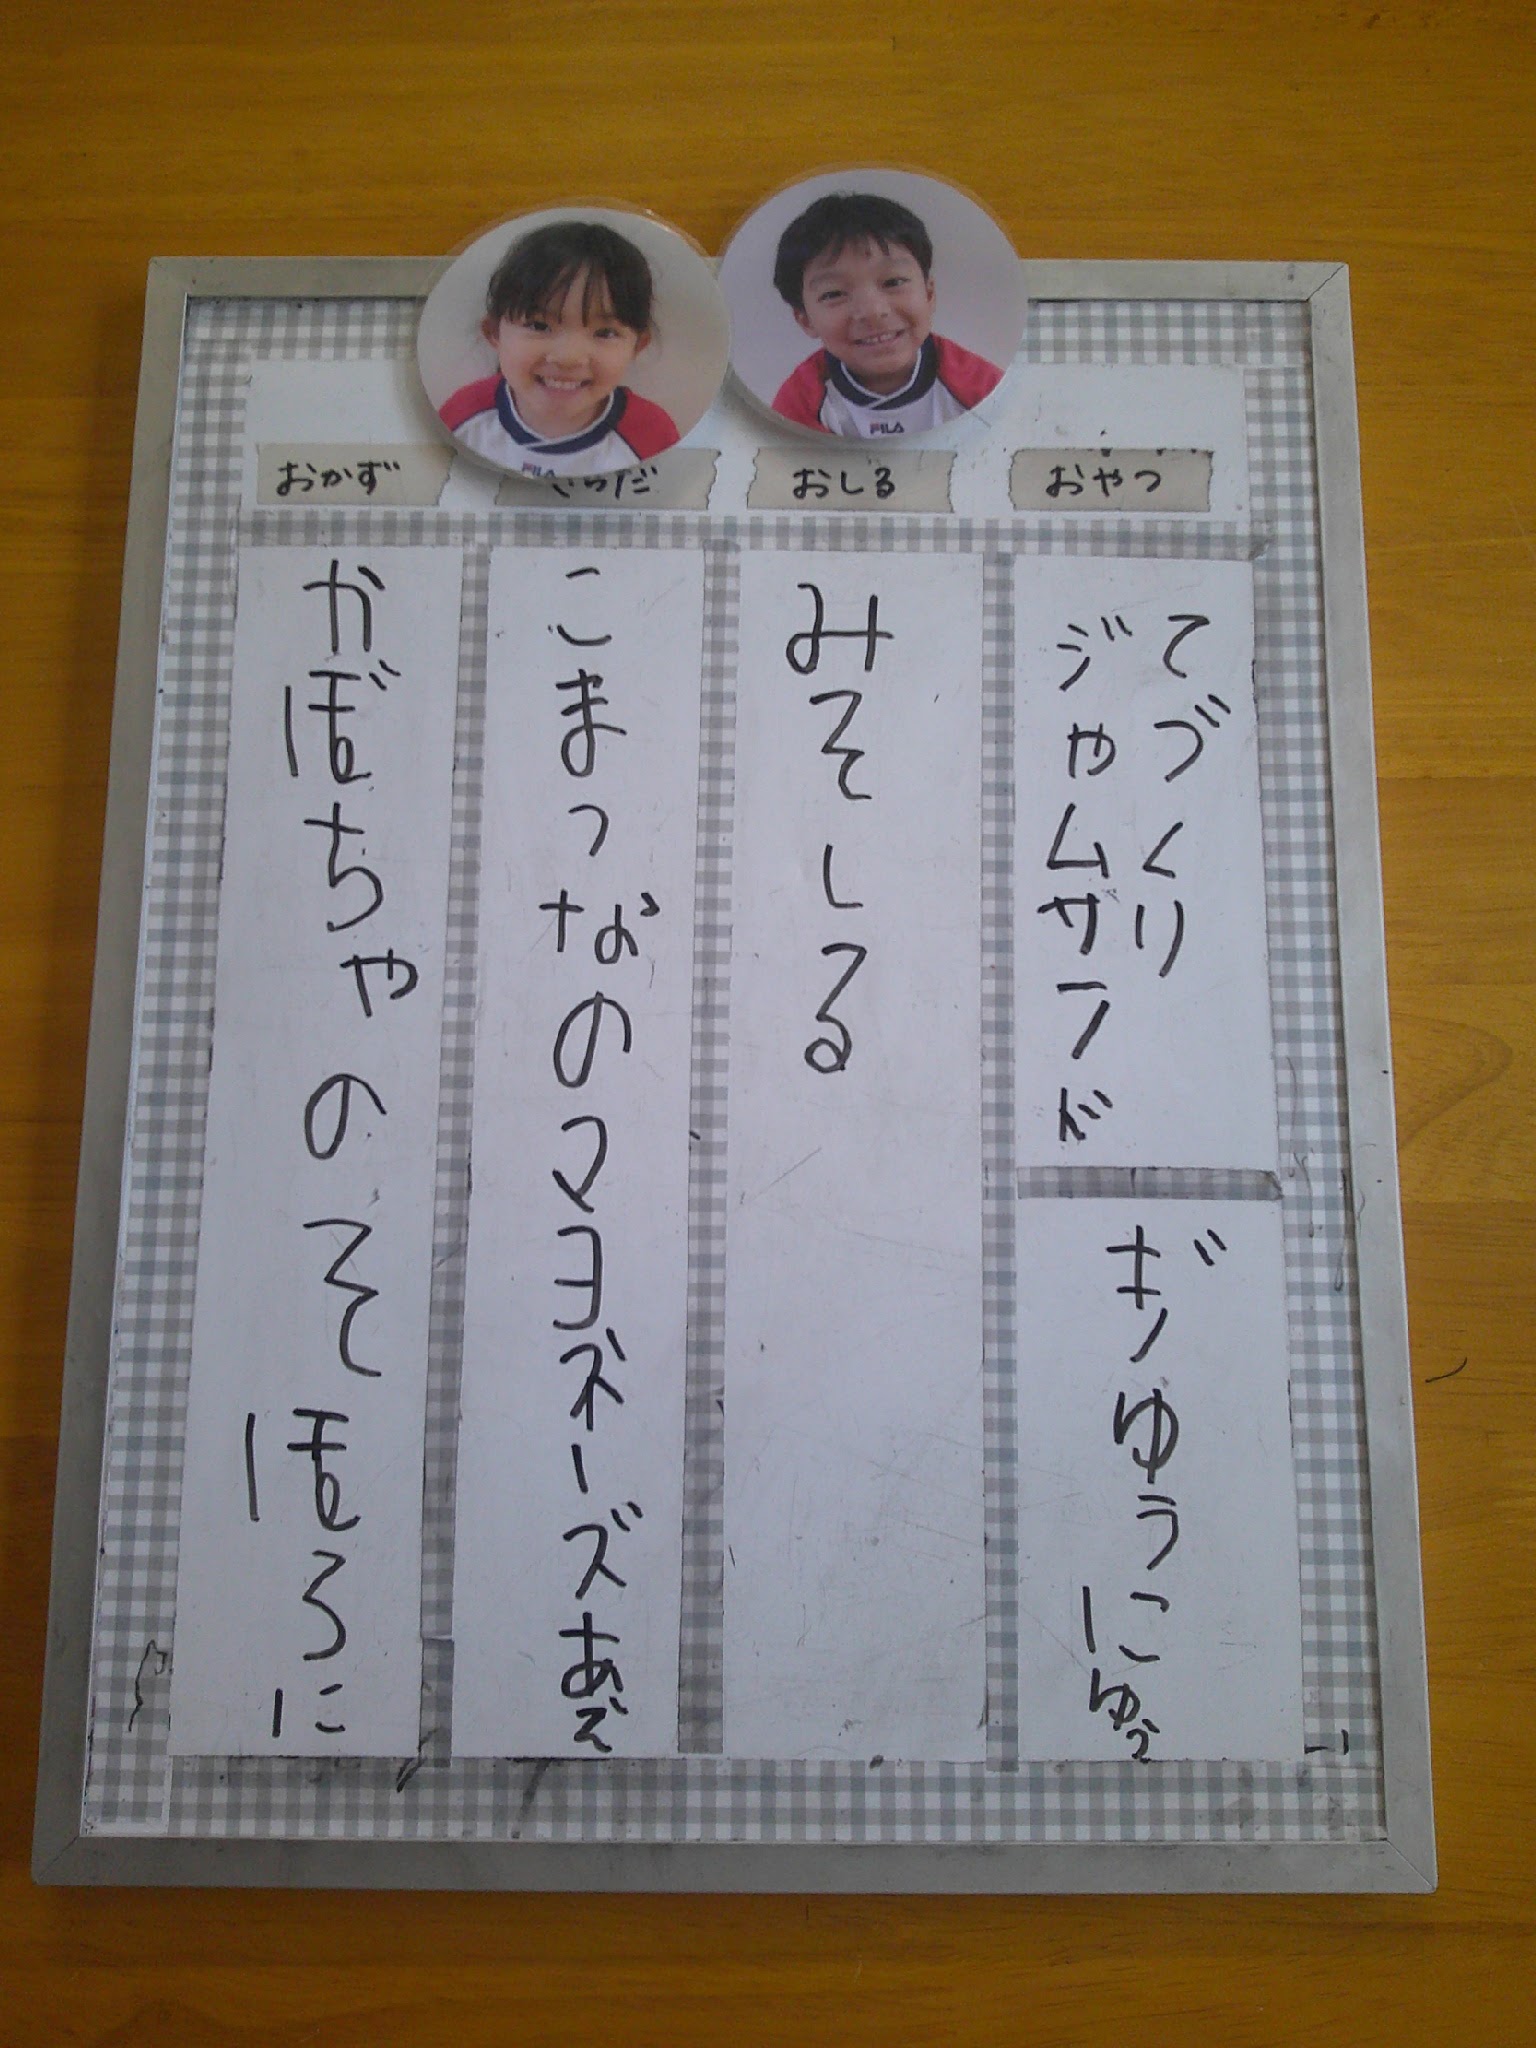 おかず
さらだ
おしる
おやつ
かぼちゃのそぼろに
こまつなのマヨネーズあえ
みそしる
てづくり
ジャムサンド
ギゅうにゅう
FILA
FILA